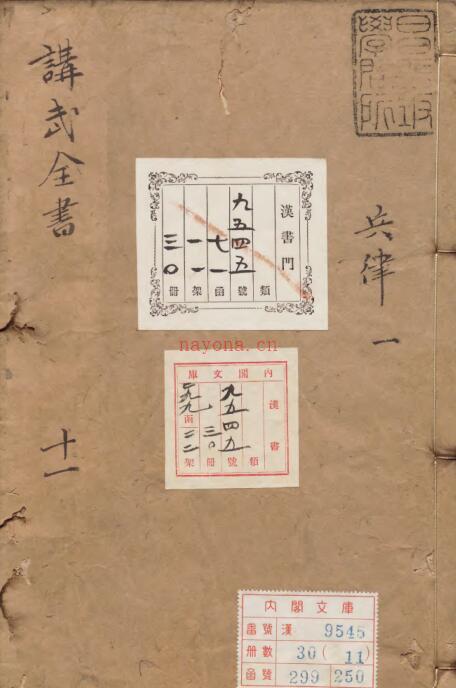 昌平坂
學問所
講武全書
十一
兵律 一
漢書門
類
九五四五號
七一函
一一架
三〇冊
nayona.cn
內閣文庫
漢書
九五四五
類號
三〇冊
函
架
內閣文庫
番號 漢 9545
冊數 30 ( 11 )
函號 299 250